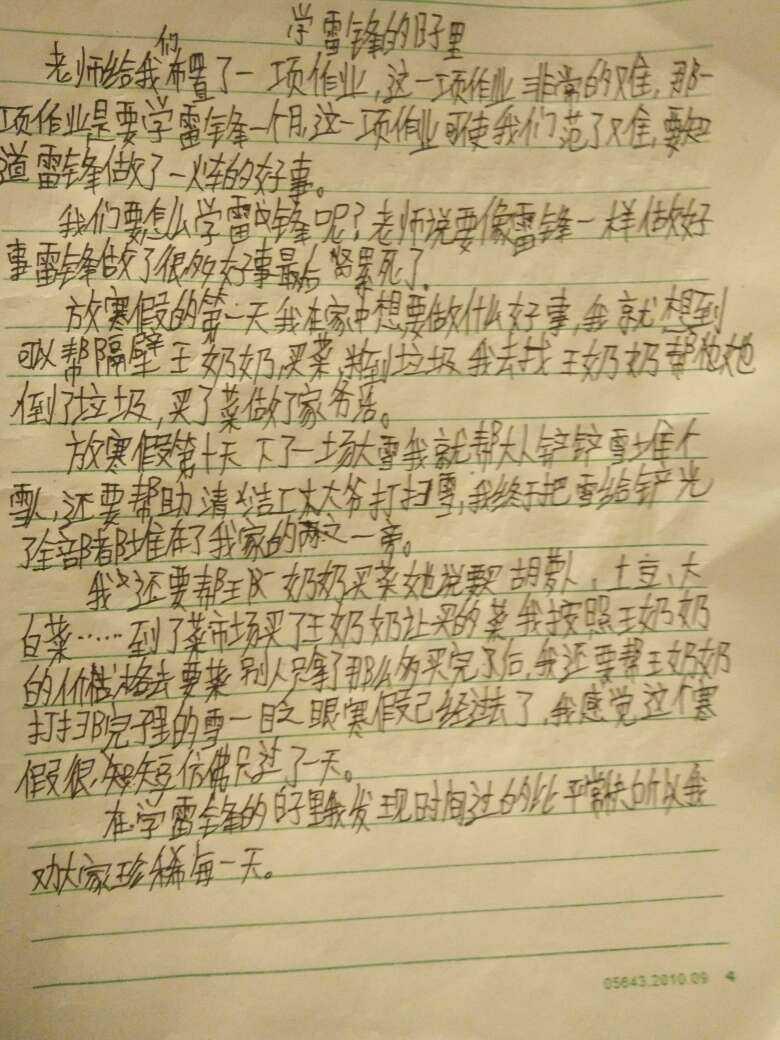 学雷锋的日子里
老师给我们布置了一项作业,这一项作业非常的难,那一
项作业是要学雷锋一个月,这一项作业可使我们范了难,要知
道雷锋做了一火车的好事。
我们要怎么学雷锋呢?老师说要像雷锋一样做好
事雷锋做了很多好事最后累死了。
放寒假的第一天我在家中想要做什么好事,我就想到
可以帮隔壁王奶奶,买菜,倒垃圾我去找王奶奶帮她
倒了垃圾,买了菜做了家务活。
放寒假第十天下了一场大雪我就帮大人铲铲雪堆个
雪人,还要帮助清洁工大爷打扫雪,我终于把雪给铲光
了全部都堆在了我家的一旁。
我还要帮王奶奶买菜她说要买胡萝卜,土豆,大
白菜……到了菜市场买了王奶奶让买的菜我按照王奶奶
的价格去要菜别人只拿了那么多买完了后,我还要帮王奶奶
打扫院子里的雪一目之眼寒假已经过去了,我感觉这个寒
假很短仿佛只过了一天。
在学雷锋的日子里我发现时间过的比平常快所以我
劝大家珍稀每一天。
05643.2010.09 4